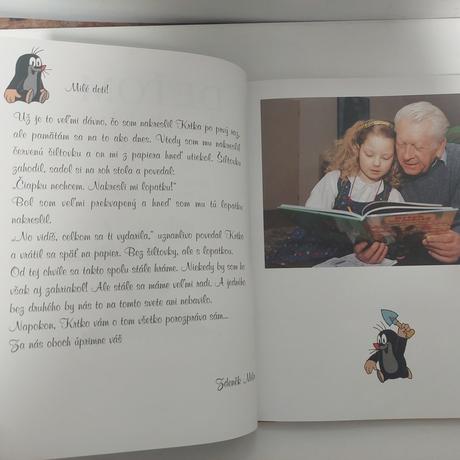 Milé deti!
Už je to veľmi dávno, čo som nakreslil Krtka po prvý raz,
ale pamätám sa na to ako dnes. Vtedy som mu nakreslil
červenú šiltovku a on mi z papiera hneď utiekol. Šiltovku
zahodil, sadol si na roh stola a povedal:
„Čiapku nechcem. Nakresli mi lopatku!“
Bol som veľmi prekvapený a hneď som mu tú lopatku
nakreslil.
„No vidíš, celkom sa ti vydarila,“ uznanlivo povedal Krtko
a vrátil sa späť na papier. Bez šiltovky, ale s lopatkou.
Od tej chvíle sa takto spolu stále hráme. Niekedy by som ho
však aj zahriakol! Ale stále sa máme veľmi radi. A jedného
bez druhého by nás to na tomto svete ani nebavilo.
Napokon, Krtko vám o tom všetko porozpráva sám...
Za nás oboch úprimne váš
Zdeněk